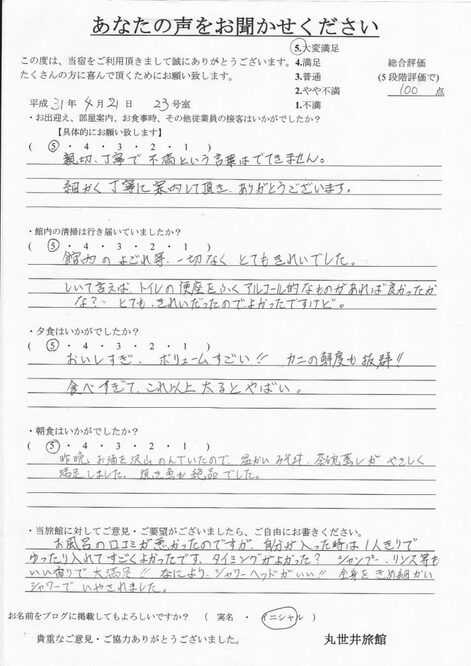 あなたの声をお聞かせください
この度は、当宿をご利用頂きまして誠にありがとうございます。
たくさんの方に喜んで頂くためにお願い致します。
5.大変満足
4.満足
3.普通
2.やや不満
1.不満
総合評価
(5段階評価で)
100 点
平成 31年 4月 21日 23号室
・お出迎え、部屋案内、お食事時、その他従業員の接客はいかがでしたか?
【具体的にお願い致します】
( 5 ・ 4 ・ 3 ・ 2 ・ 1 )
親切、丁寧で不満という言葉はでてきません。
細かく丁寧に案内して頂き、ありがとうございます。
・館内の清掃は行き届いていましたか?
( 5 ・ 4 ・ 3 ・ 2 ・ 1 )
館内のよごれ等、一切なく とてもきれいでした。
しいて言えば、トイレの便座をふくアルコール的なものがあれば良かったか
な? とても、きれいだったのでよかったですけど。
・夕食はいかがでしたか?
( 5 ・ 4 ・ 3 ・ 2 ・ 1 )
おいしすぎ、ボリュームすごい!! カニの鮮度も抜群!!
食べすぎて、これ以上太るとやばい。
・朝食はいかがでしたか?
( 5 ・ 4 ・ 3 ・ 2 ・ 1 )
昨晩、お酒を沢山のんでいたので 温かいみそ汁、茶碗蒸しが やさしく
満足しました。焼き魚も絶品でした。
・当旅館に対してご意見・ご要望がございましたら、ご自由にお書きください。
お風呂の口コミが悪かったのですが、自分が入った時は1人きりで
ゆったり入れてすごくよかったです。タイミングがよかった? シャンプー、リンス等も
いい香りで 大満足!! なにより、シャワーヘッドがいい!! 全身をきめ細かい
シャワーで いやされました。
お名前をブログに掲載してもよろしいですか? ( 実名 ・ イニシャル )
貴重なご意見・ご協力ありがとうございました。
丸世井旅館